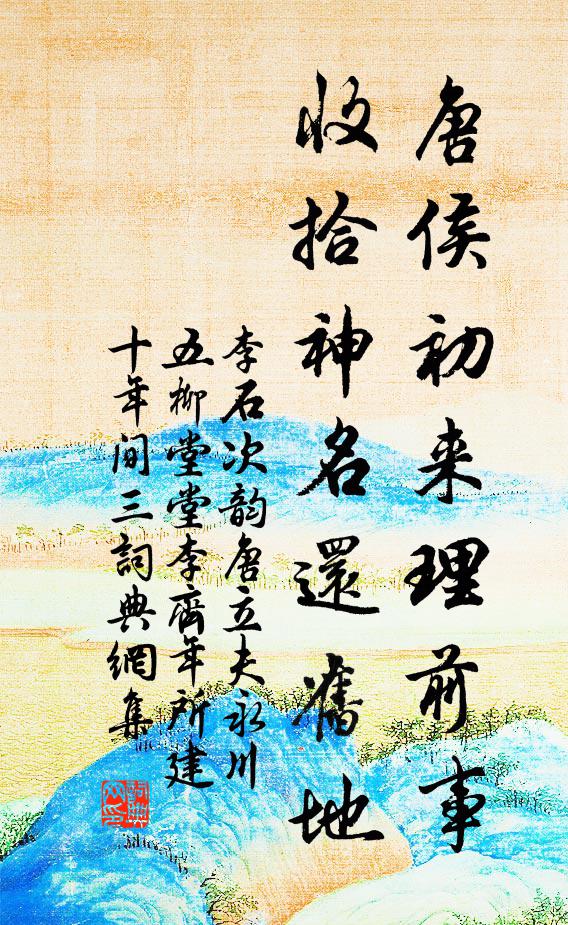 唐侯初来理前事
收拾神名還舊地
李石次韵唐立夫永川
五柳堂堂李齊年所建
十年间三詞典網集